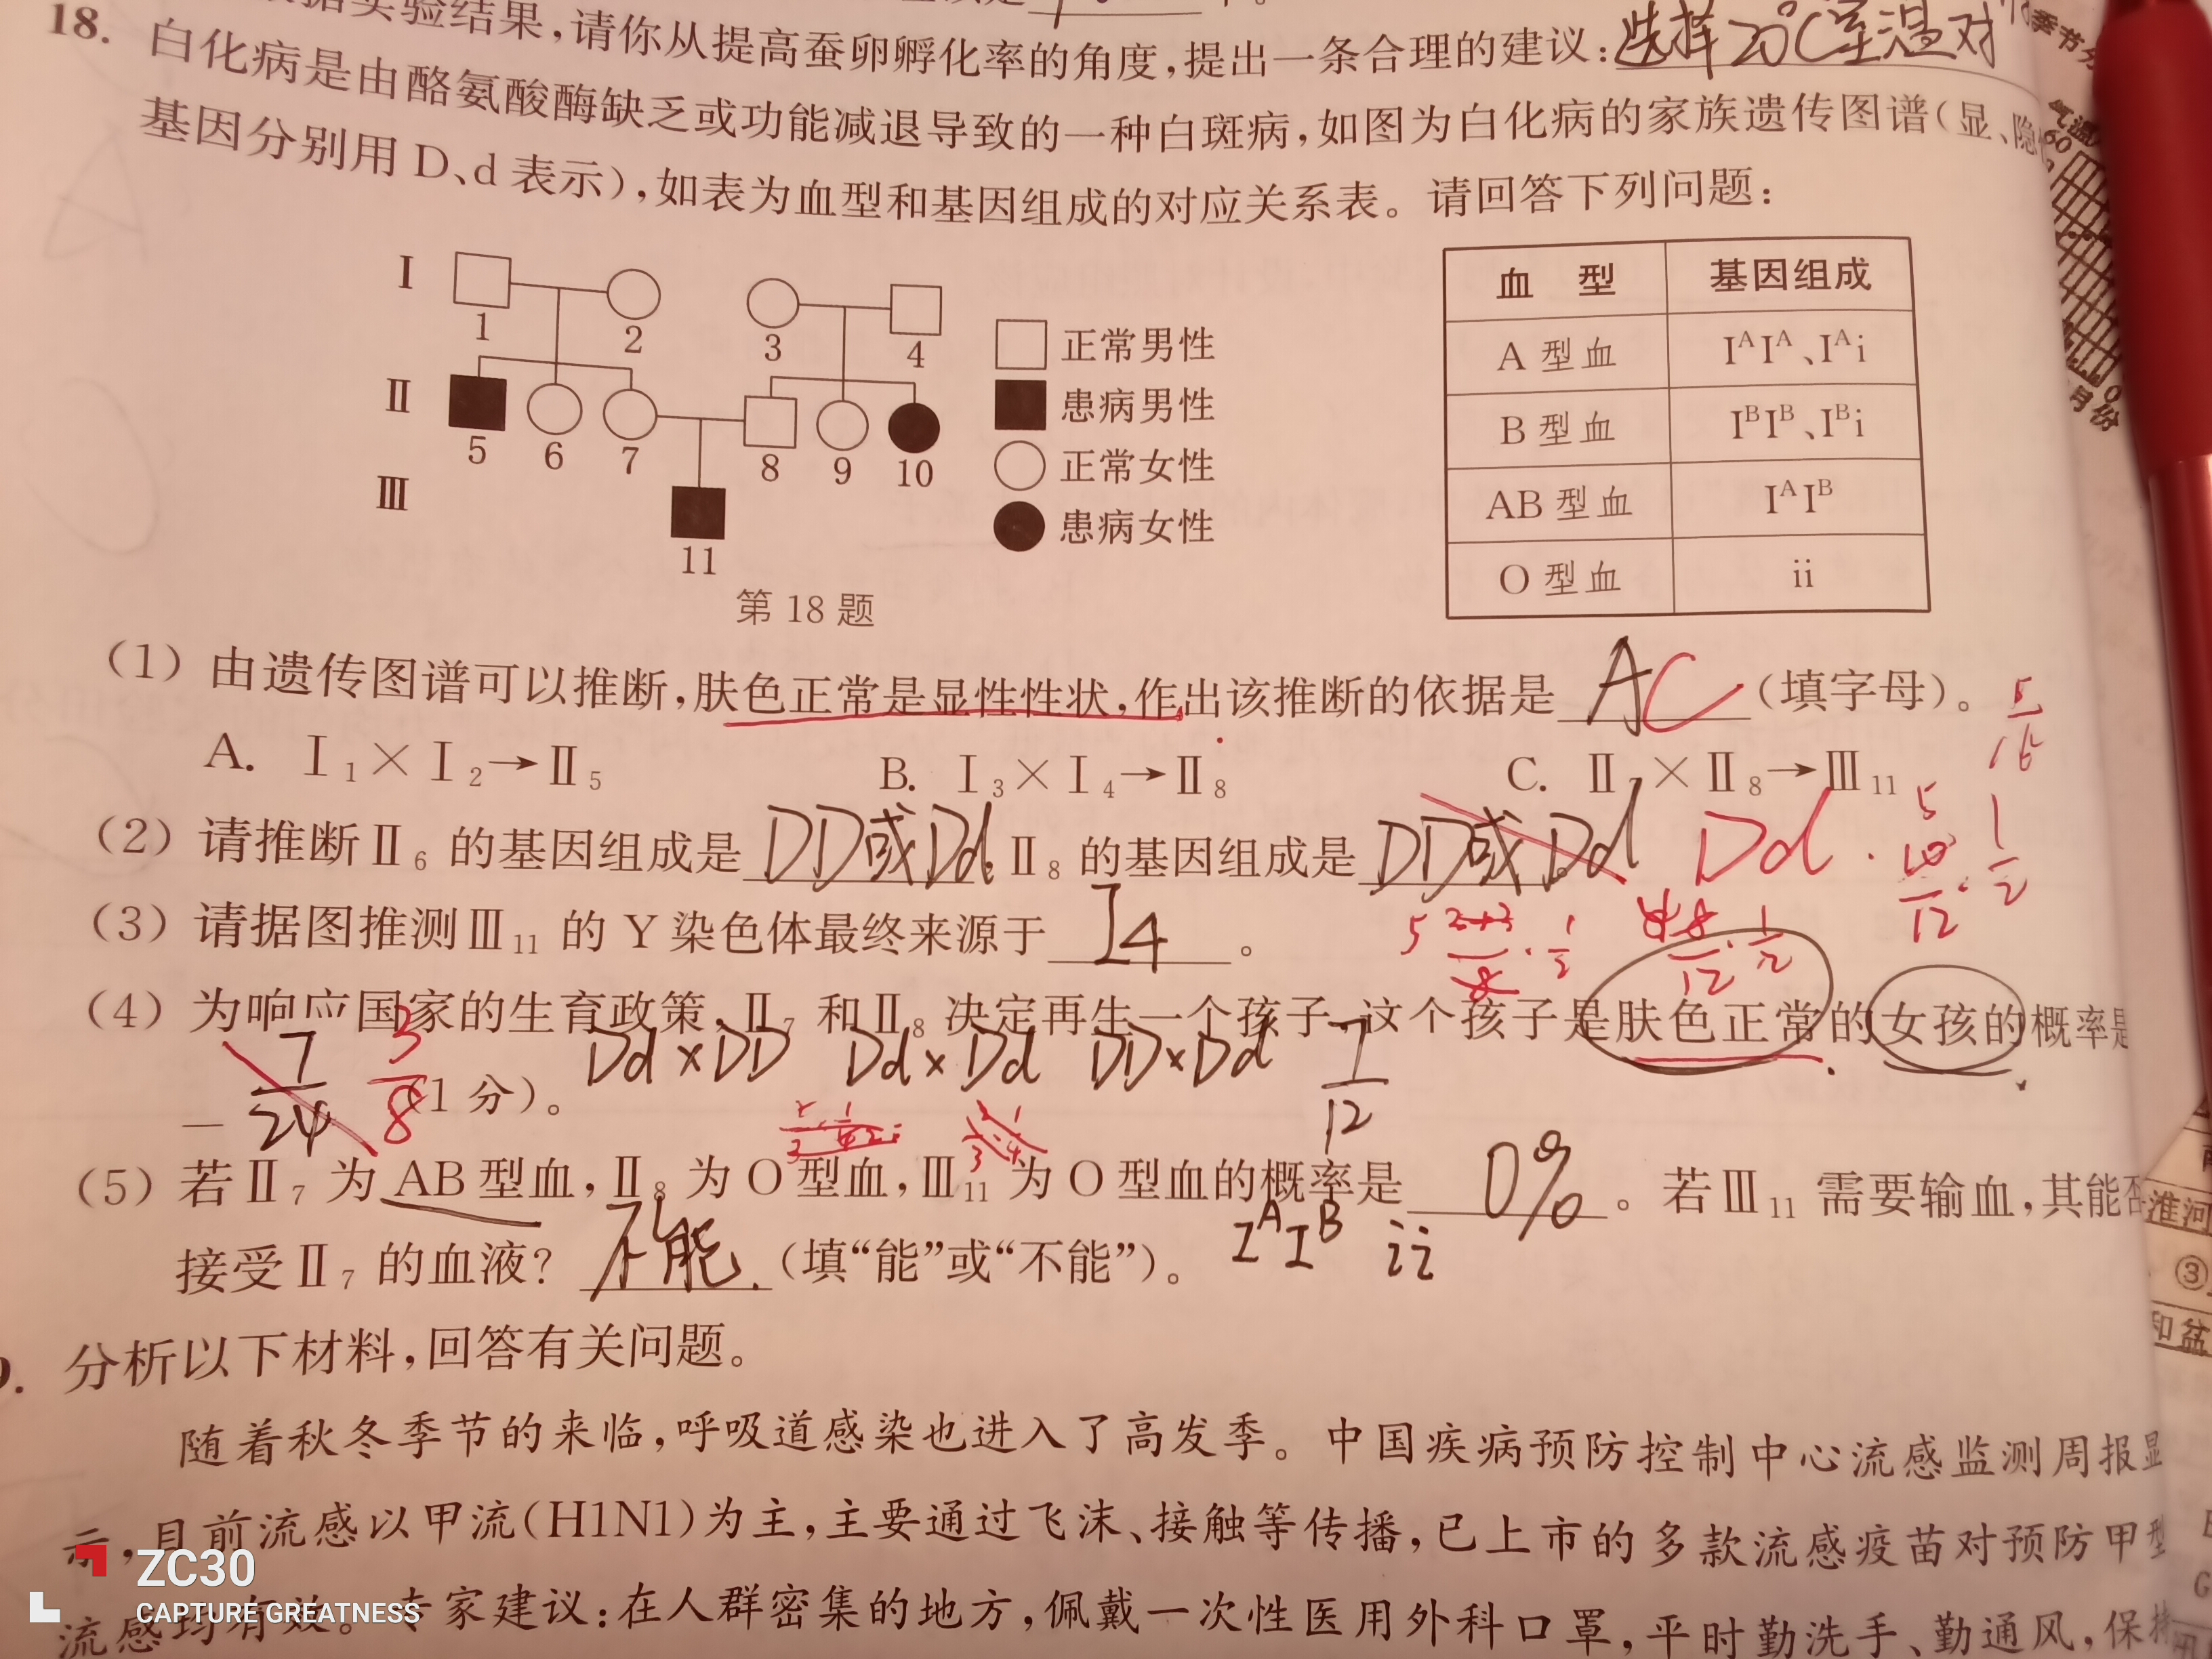 实验结果,请你从提高蚕卵孵化率的角度,提出一条合理的建议:选择20℃室温对
18. 白化病是由酪氨酸酶缺乏或功能减退导致的一种白斑病,如图为白化病的家族遗传图谱(显、隐
基因分别用D、d表示),如表为血型和基因组成的对应关系表。请回答下列问题:
Ⅰ
1
2
3
4
Ⅱ
5
6
7
8
9
10
Ⅲ
11
正常男性
患病男性
正常女性
患病女性
第18题
血 型 基因组成
A型血 IᴬIᴬ、Iᴬi
B型血 IᴮIᴮ、Iᴮi
AB型血 IᴬIᴮ
O型血 ii
(1) 由遗传图谱可以推断,肤色正常是显性性状,作出该推断的依据是 AC (填字母)。
5/16
A. Ⅰ₁×Ⅰ₂→Ⅱ₅ B. Ⅰ₃×Ⅰ₄→Ⅱ₈ C. Ⅱ₇×Ⅱ₈→Ⅲ₁₁
(2) 请推断Ⅱ₆的基因组成是 DD或Dd,Ⅱ₈的基因组成是 DD或Dd。 Dd
(3) 请据图推测Ⅲ₁₁的Y染色体最终来源于 I4 。
(4) 为响应国家的生育政策,Ⅱ₇和Ⅱ₈决定再生一个孩子,这个孩子是肤色正常的女孩的概率是
7/24 3/8 (1分)。
Dd×DD Dd×Dd DD×Dd
(5) 若Ⅱ₇为AB型血,Ⅱ₈为O型血,Ⅲ₁₁为O型血的概率是 0% 。若Ⅲ₁₁需要输血,其能否
接受Ⅱ₇的血液? 不能 (填“能”或“不能”)。
IᴬIᴮ ii
分析以下材料,回答有关问题。
随着秋冬季节的来临,呼吸道感染也进入了高发季。中国疾病预防控制中心流感监测周报显
示,目前流感以甲流(H1N1)为主,主要通过飞沫、接触等传播,已上市的多款流感疫苗对预防甲型
流感均有效。专家建议:在人群密集的地方,佩戴一次性医用外科口罩,平时勤洗手、勤通风,保持
季节
气温
60
月份
淮河
③
和盆
ZC30
CAPTURE GREATNESS